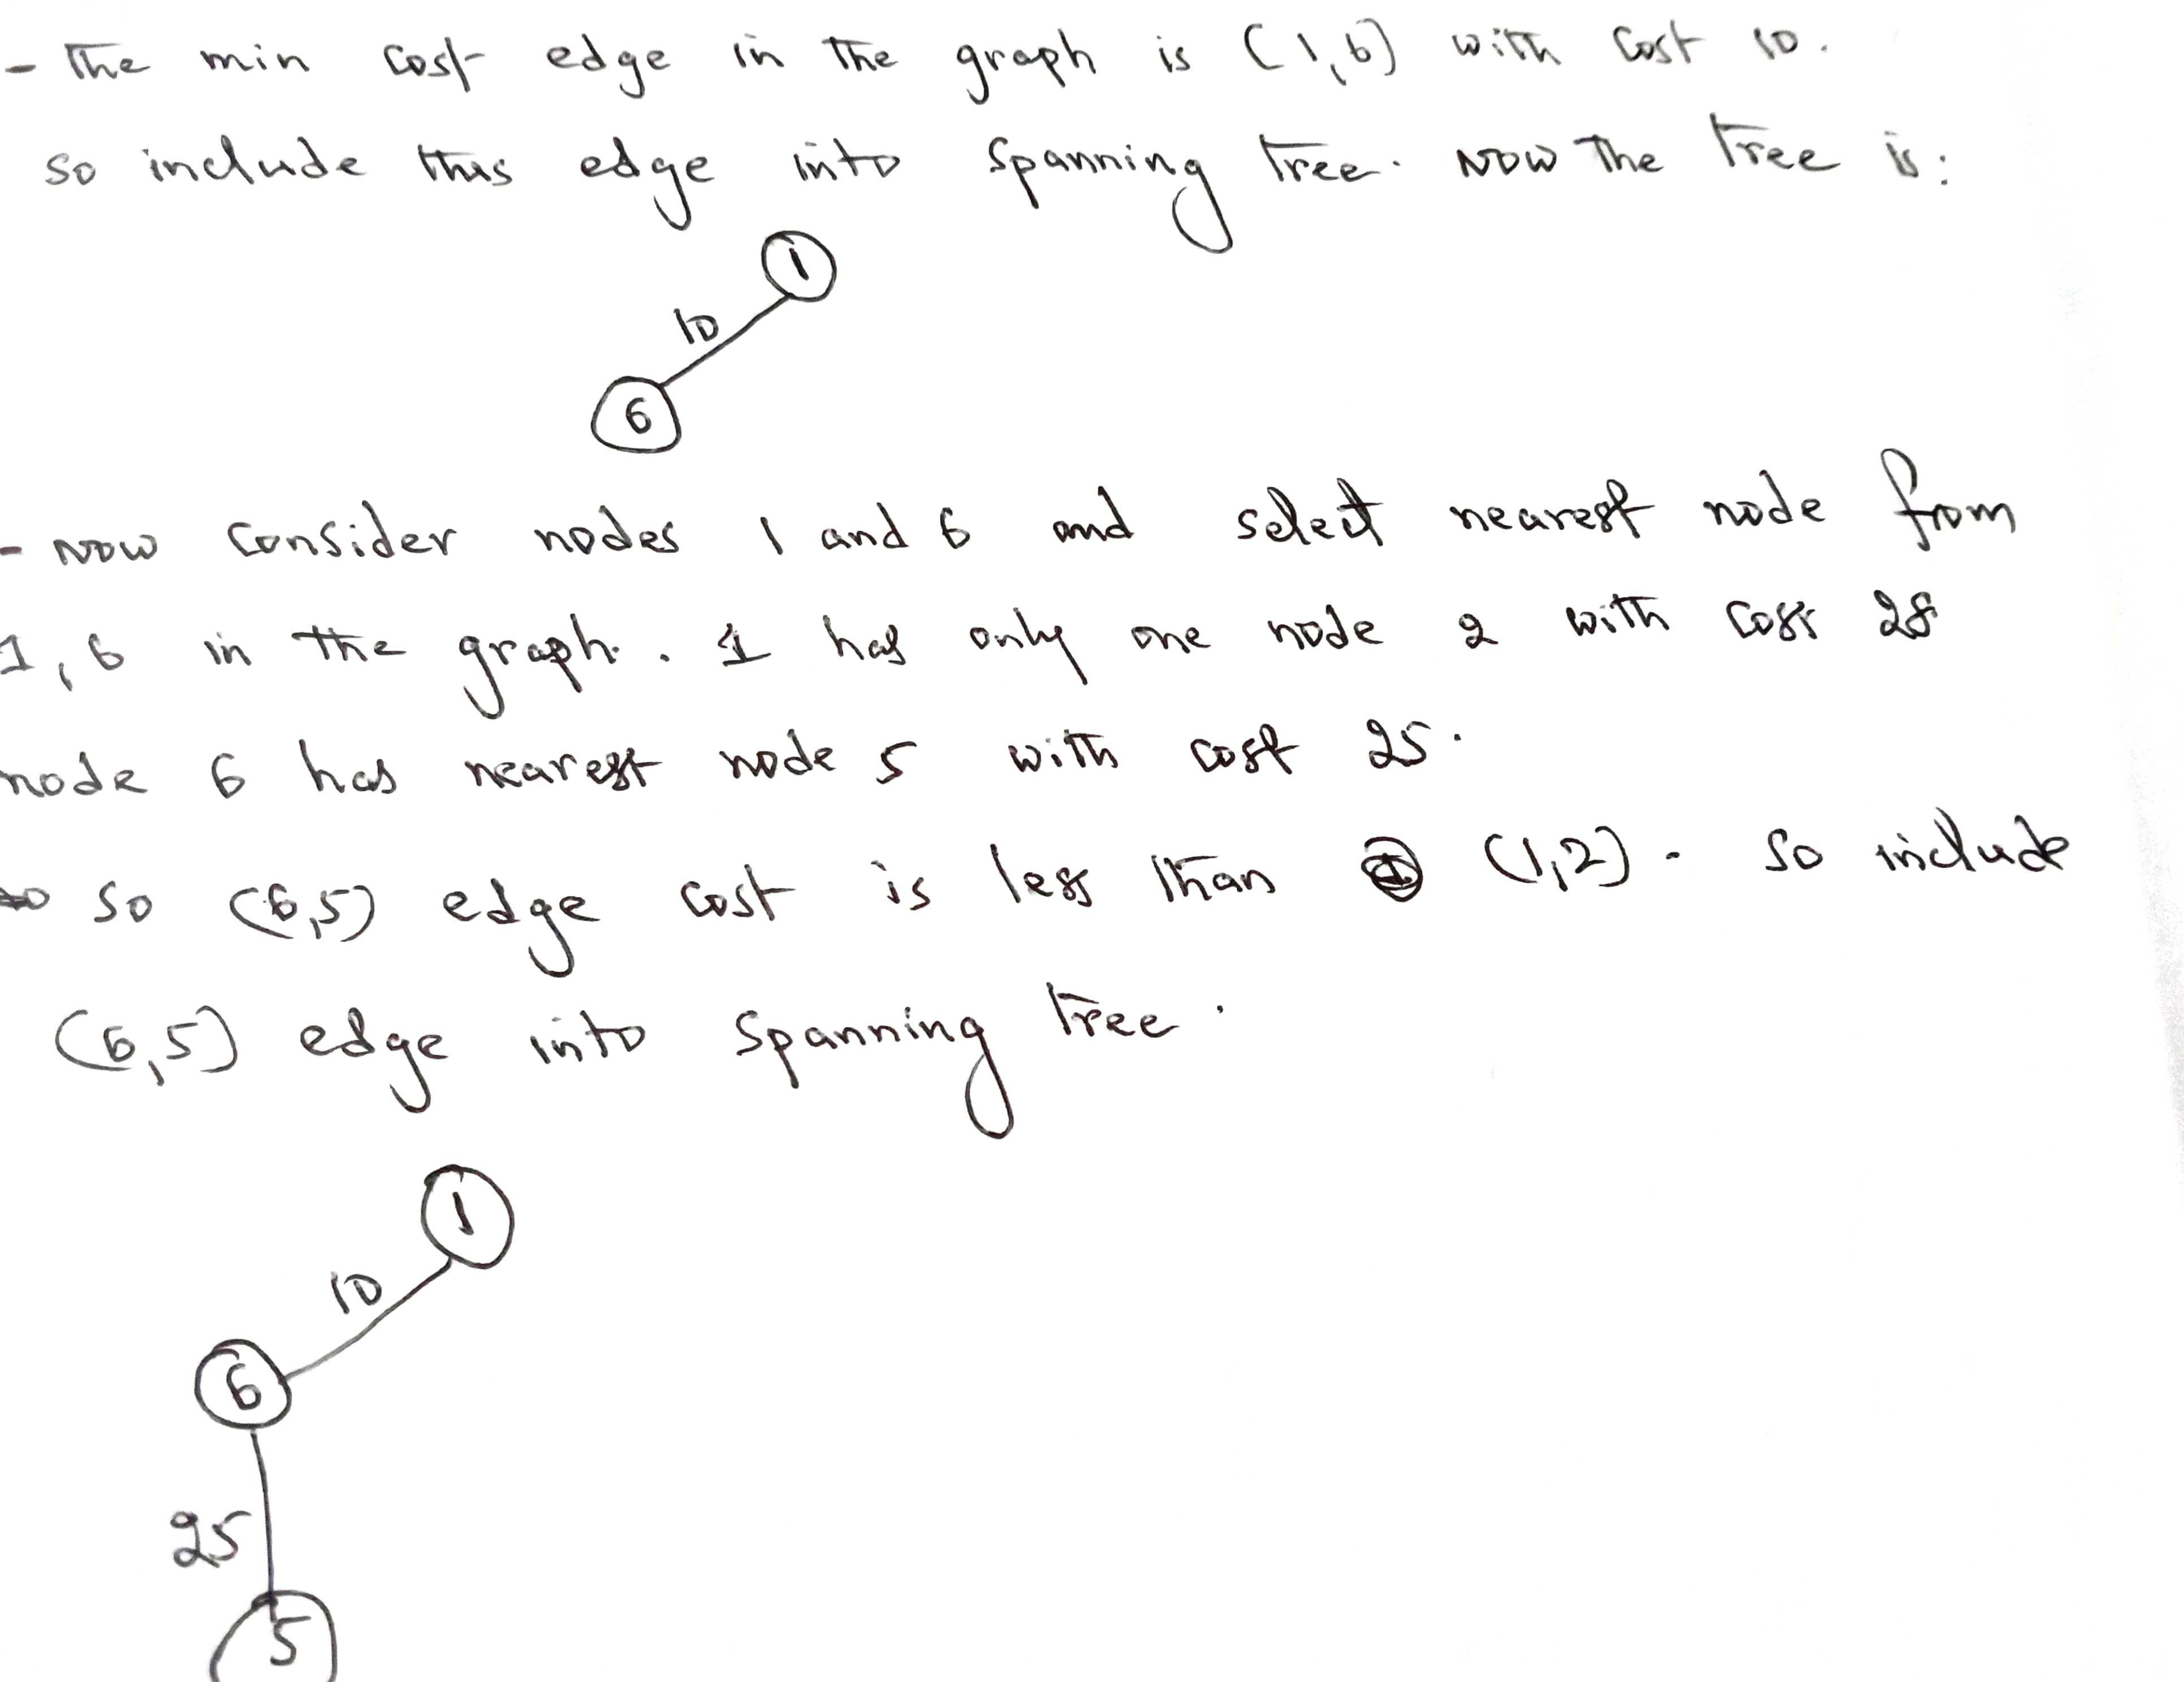 - The min cost edge in the graph is (1,6) with cost 10.
so include this edge into spanning tree. Now the tree is:
1
10
6
- Now consider nodes 1 and 6 and select nearest node from
1,6 in the graph. . 1 has only one node 2 with cost 28
node 6 has nearest node 5 with cost 25.
so (6,5) edge cost is less than (1,2). So include
(6,5) edge into spanning tree.
1
10
6
25
5